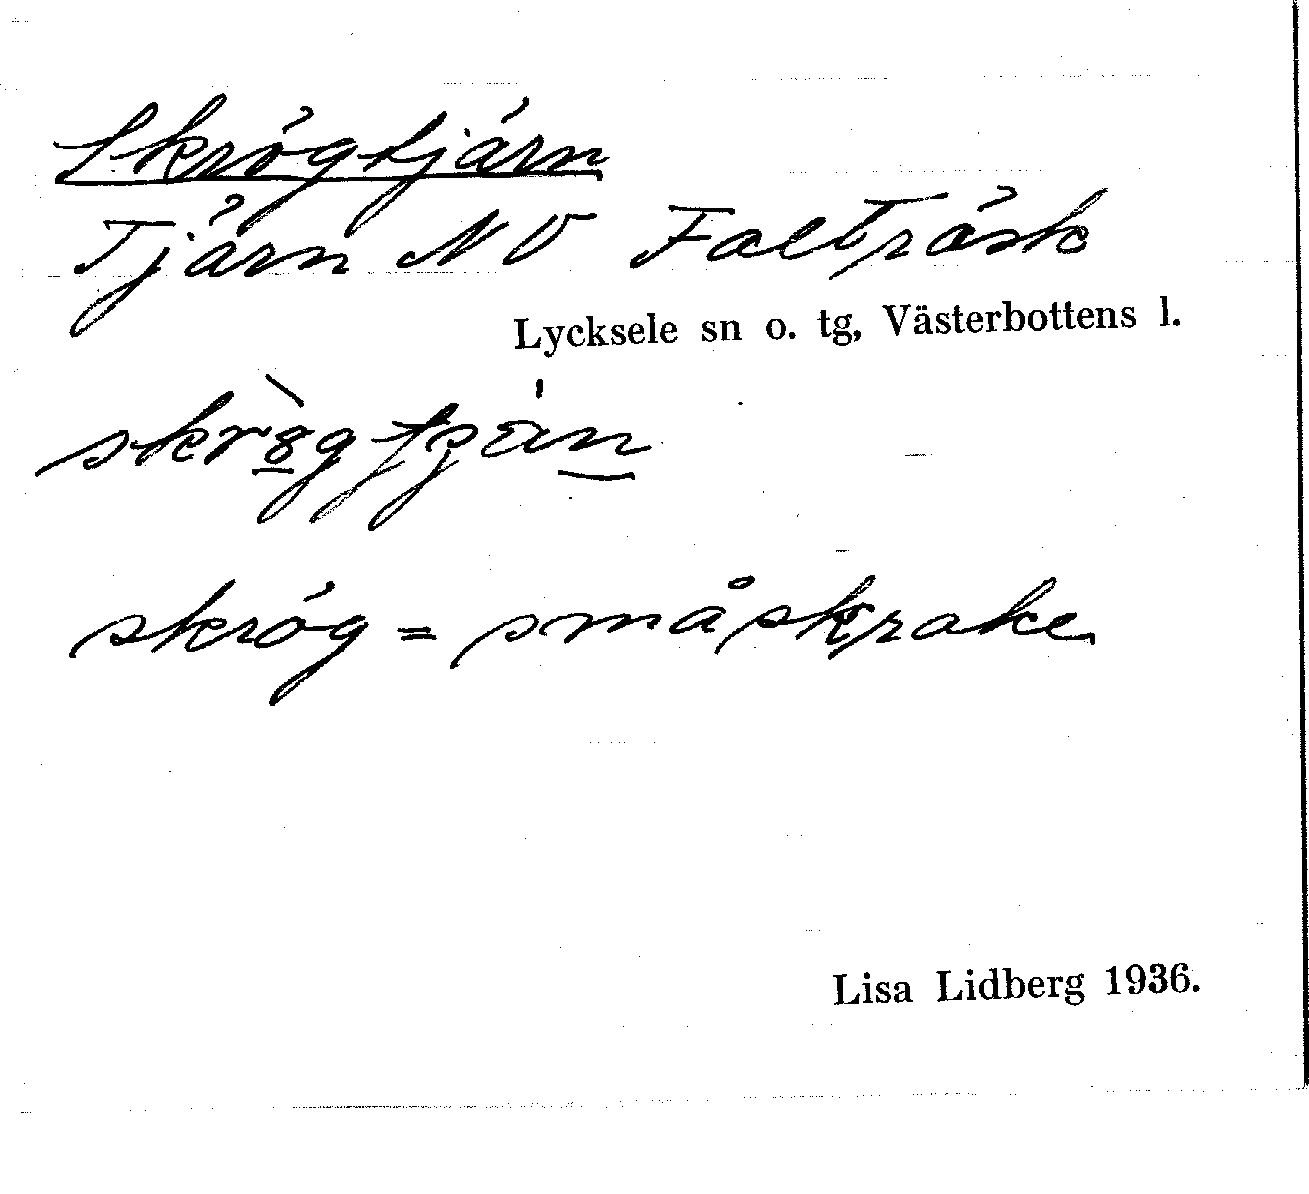 Skrögtjärn
Tjärn NV Falträsk
Lycksele sn o. tg, Västerbottens l.
skrög = småskrake
Lisa Lidberg 1936.